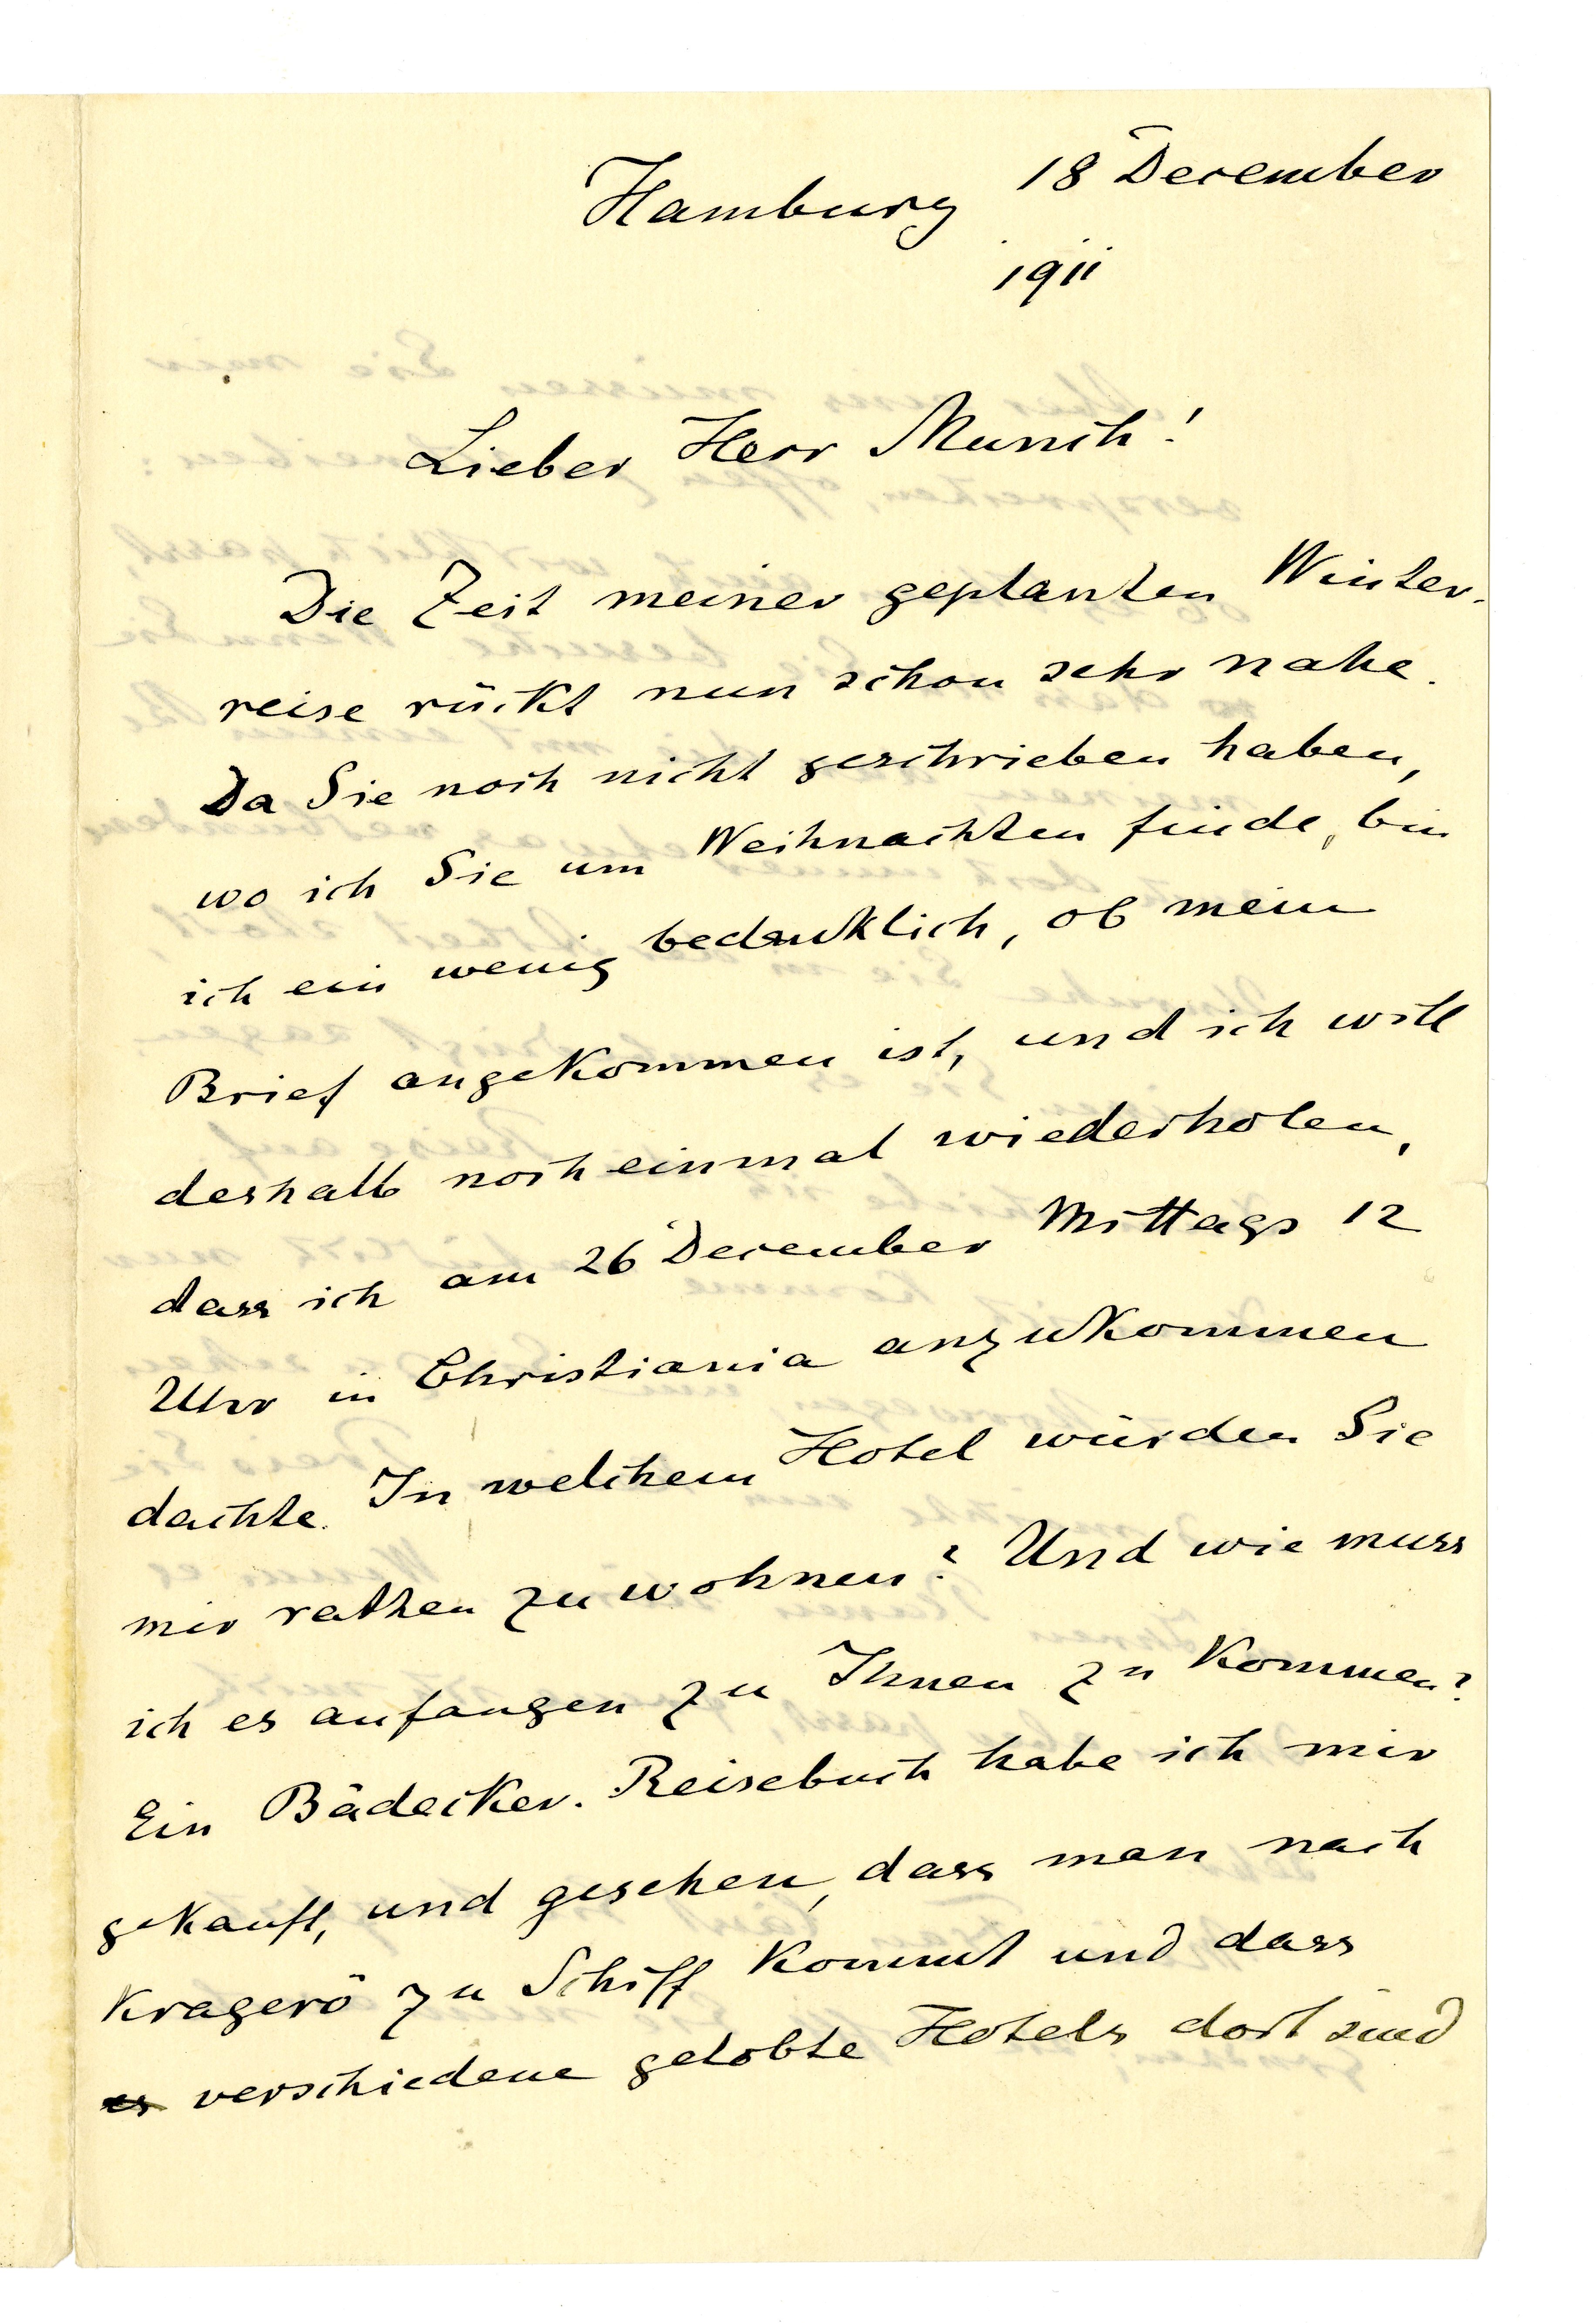 Hamburg 18 December
1911
Lieber Herr Munch!
Die Zeit meiner geplanten Winter-
reise rückt nun schon sehr nahe.
Da Sie noch nicht geschrieben haben,
wo ich Sie um Weihnachten finde, bin
ich ein wenig bedenklich, ob mein
Brief angekommen ist, und ich will
deshalb noch einmal wiederholen,
dass ich am 26 December Mittags 12
Uhr in Christiania anzukommen
dachte. In welchem Hotel würden Sie
mir rathen zu wohnen? Und wie muss
ich es anfangen zu Ihnen zu kommen?
Ein Bädecker-Reisebuch habe ich mir
gekauft, und gesehen, dass man nach
Kragerö zu Schiff kommt und dass
es verschiedene gelobte Hotels dort sind